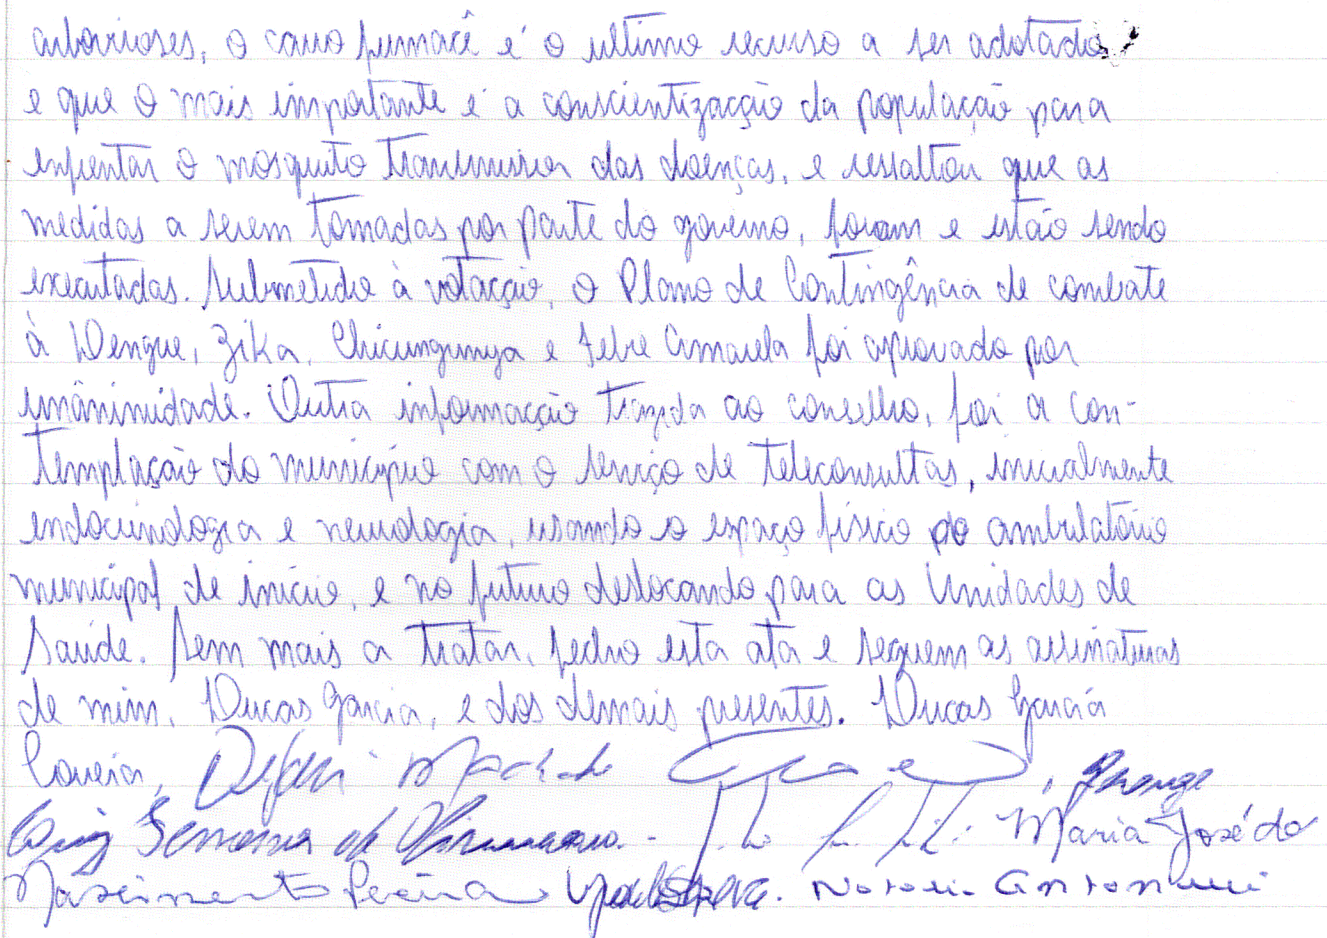 arboviroses, o carro fumacê é o ultimo recurso a ser adotado
e que o mais importante é a conscientização da população para
enfrentar o mosquito transmissor das doenças, e ressaltou que as
medidas a serem tomadas por parte do governo, foram e estão sendo
executadas. Submetido à votação, o Plano de Contingência de combate
à Dengue, Zika, Chicungunya e Febre Amarela foi aprovado por
unânimidade. Outra informação trazida ao conselho, foi a con-
templação do município com o serviço de teleconsultas, inicialmente
endocrinologia e neurologia, usando o espaço físico do ambulatório
municipal de início, e no futuro deslocando para as Unidades de
Saúde. Sem mais a tratar, fecho esta ata e seguem as assinaturas
de mim, Lucas Garcia, e dos demais presentes. Lucas Garcia
Correia, Machado
Maria José do
Nascimento Pereira Natalia Antonucci